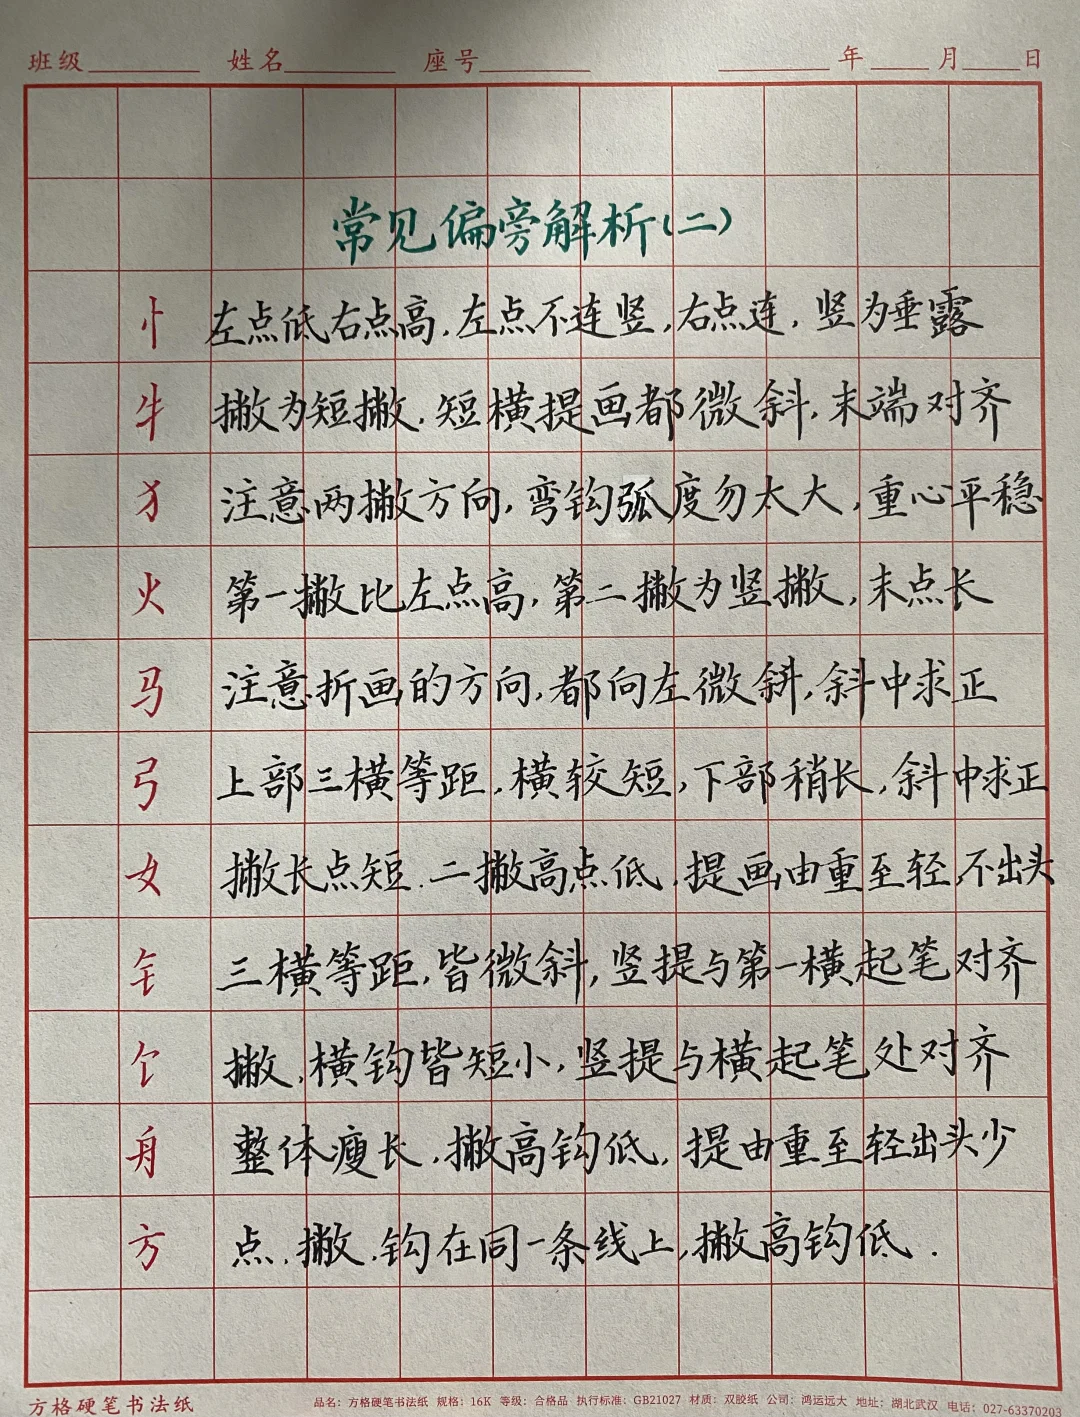 班级 姓名 座号 年 月 日
常见偏旁解析(二)
忄 左点低右点高,左点不连竖,右点连,竖为垂露
牜 撇为短撇,短横提画都微斜,末端对齐
犭 注意两撇方向,弯钩弧度勿太大,重心平稳
火 第一撇比左点高,第二撇为竖撇,末点长
马 注意折画的方向,都向左微斜,斜中求正
弓 上部三横等距,横较短,下部稍长,斜中求正
女 撇长点短.二撇高点低,提画由重至轻,不出头
钅 三横等距,皆微斜,竖提与第一横起笔对齐
饣 撇,横钩皆短小,竖提与横起笔处对齐
舟 整体瘦长,撇高钩低,提由重至轻出头少
方 点,撇,钩在同一条线上,撇高钩低.
方格硬笔书法纸 品名:方格硬笔书法纸 规格:16K 等级:合格品 执行标准:GB21027 材质:双胶纸 公司:鸿运远大 地址:湖北武汉 电话:027-63370203